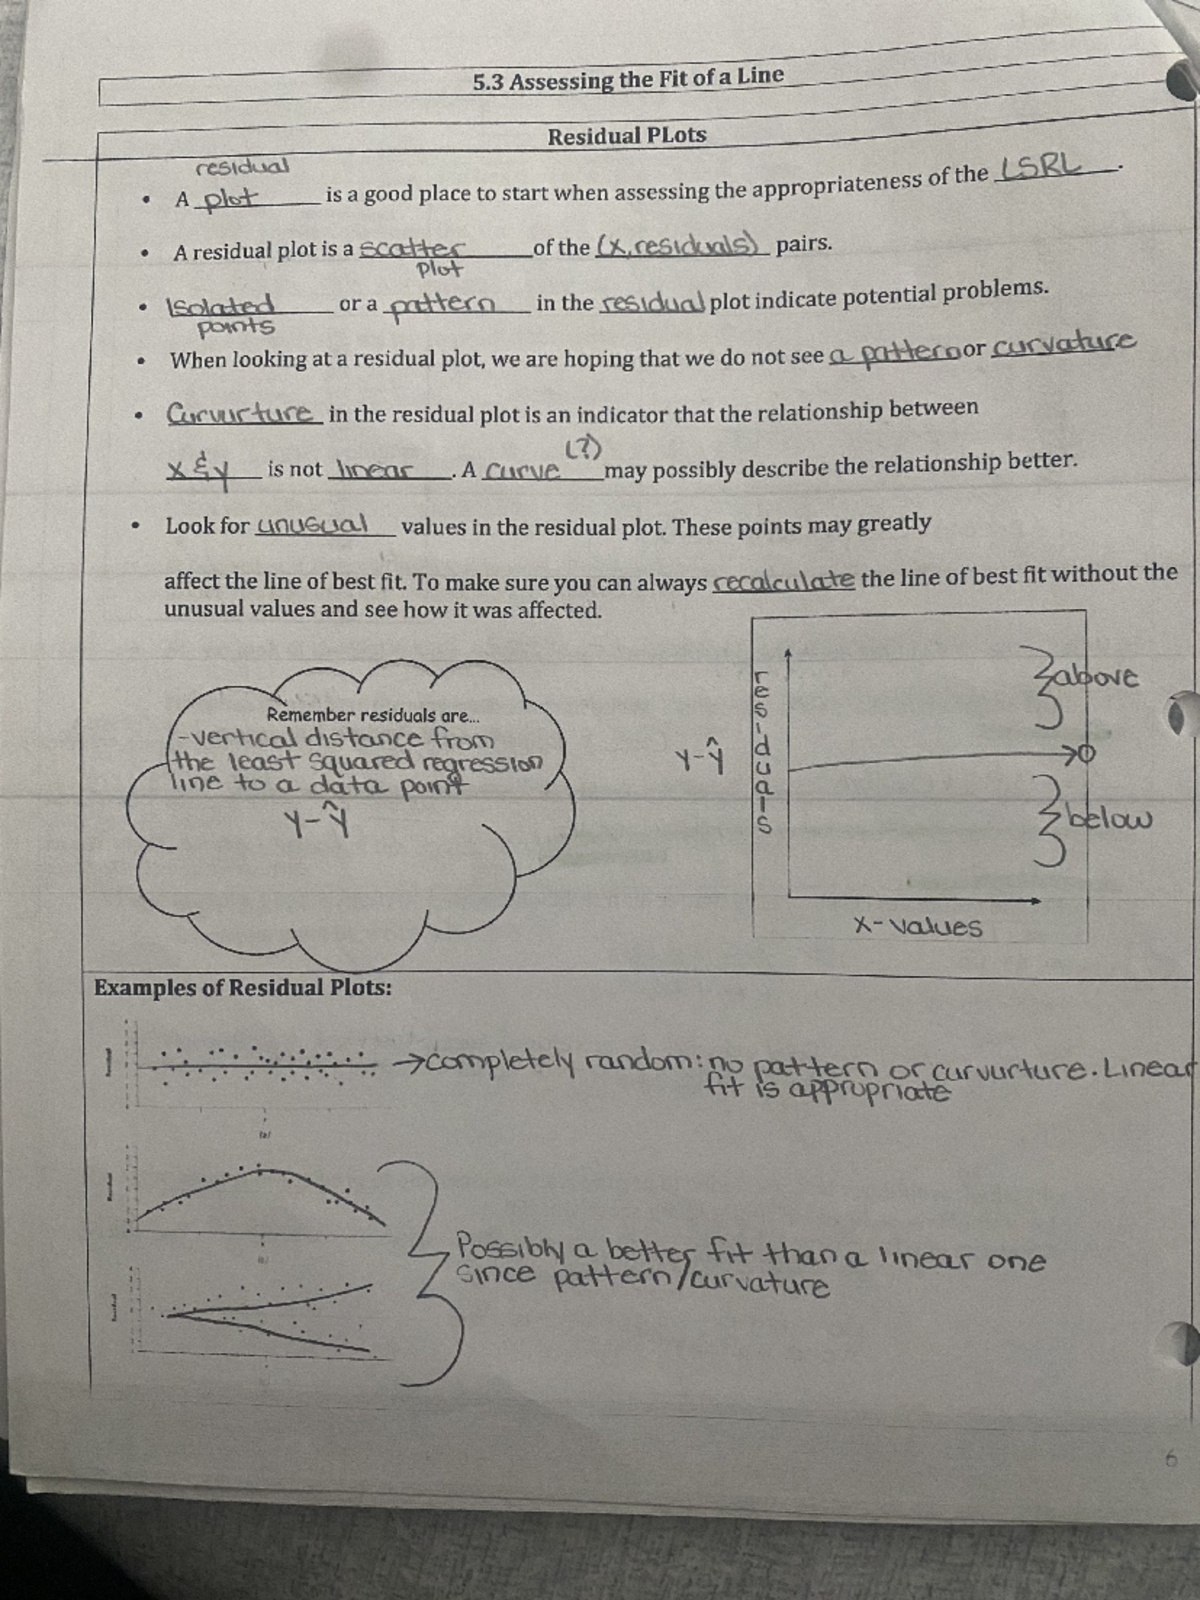 5.3 Assessing the Fit of a Line
Residual PLots
residual
• A plot is a good place to start when assessing the appropriateness of the LSRL.
• A residual plot is a scatter of the (x, residuals) pairs.
plot
• Isolated or a pattern in the residual plot indicate potential problems.
points
• When looking at a residual plot, we are hoping that we do not see a pattern or curvature
• Curvurture in the residual plot is an indicator that the relationship between
(?)
x & y is not linear. A curve may possibly describe the relationship better.
• Look for unusual values in the residual plot. These points may greatly
affect the line of best fit. To make sure you can always recalculate the line of best fit without the
unusual values and see how it was affected.
Remember residuals are...
-vertical distance from
the least squared regression
line to a data point
y-ŷ
y-ŷ
residuals
above
0
below
x-values
Examples of Residual Plots:
Residual
→completely random: no pattern or curvurture. Linear
fit is appropriate
(a)
Residual
Possibly a better fit than a linear one
since pattern/curvature
Residual
6